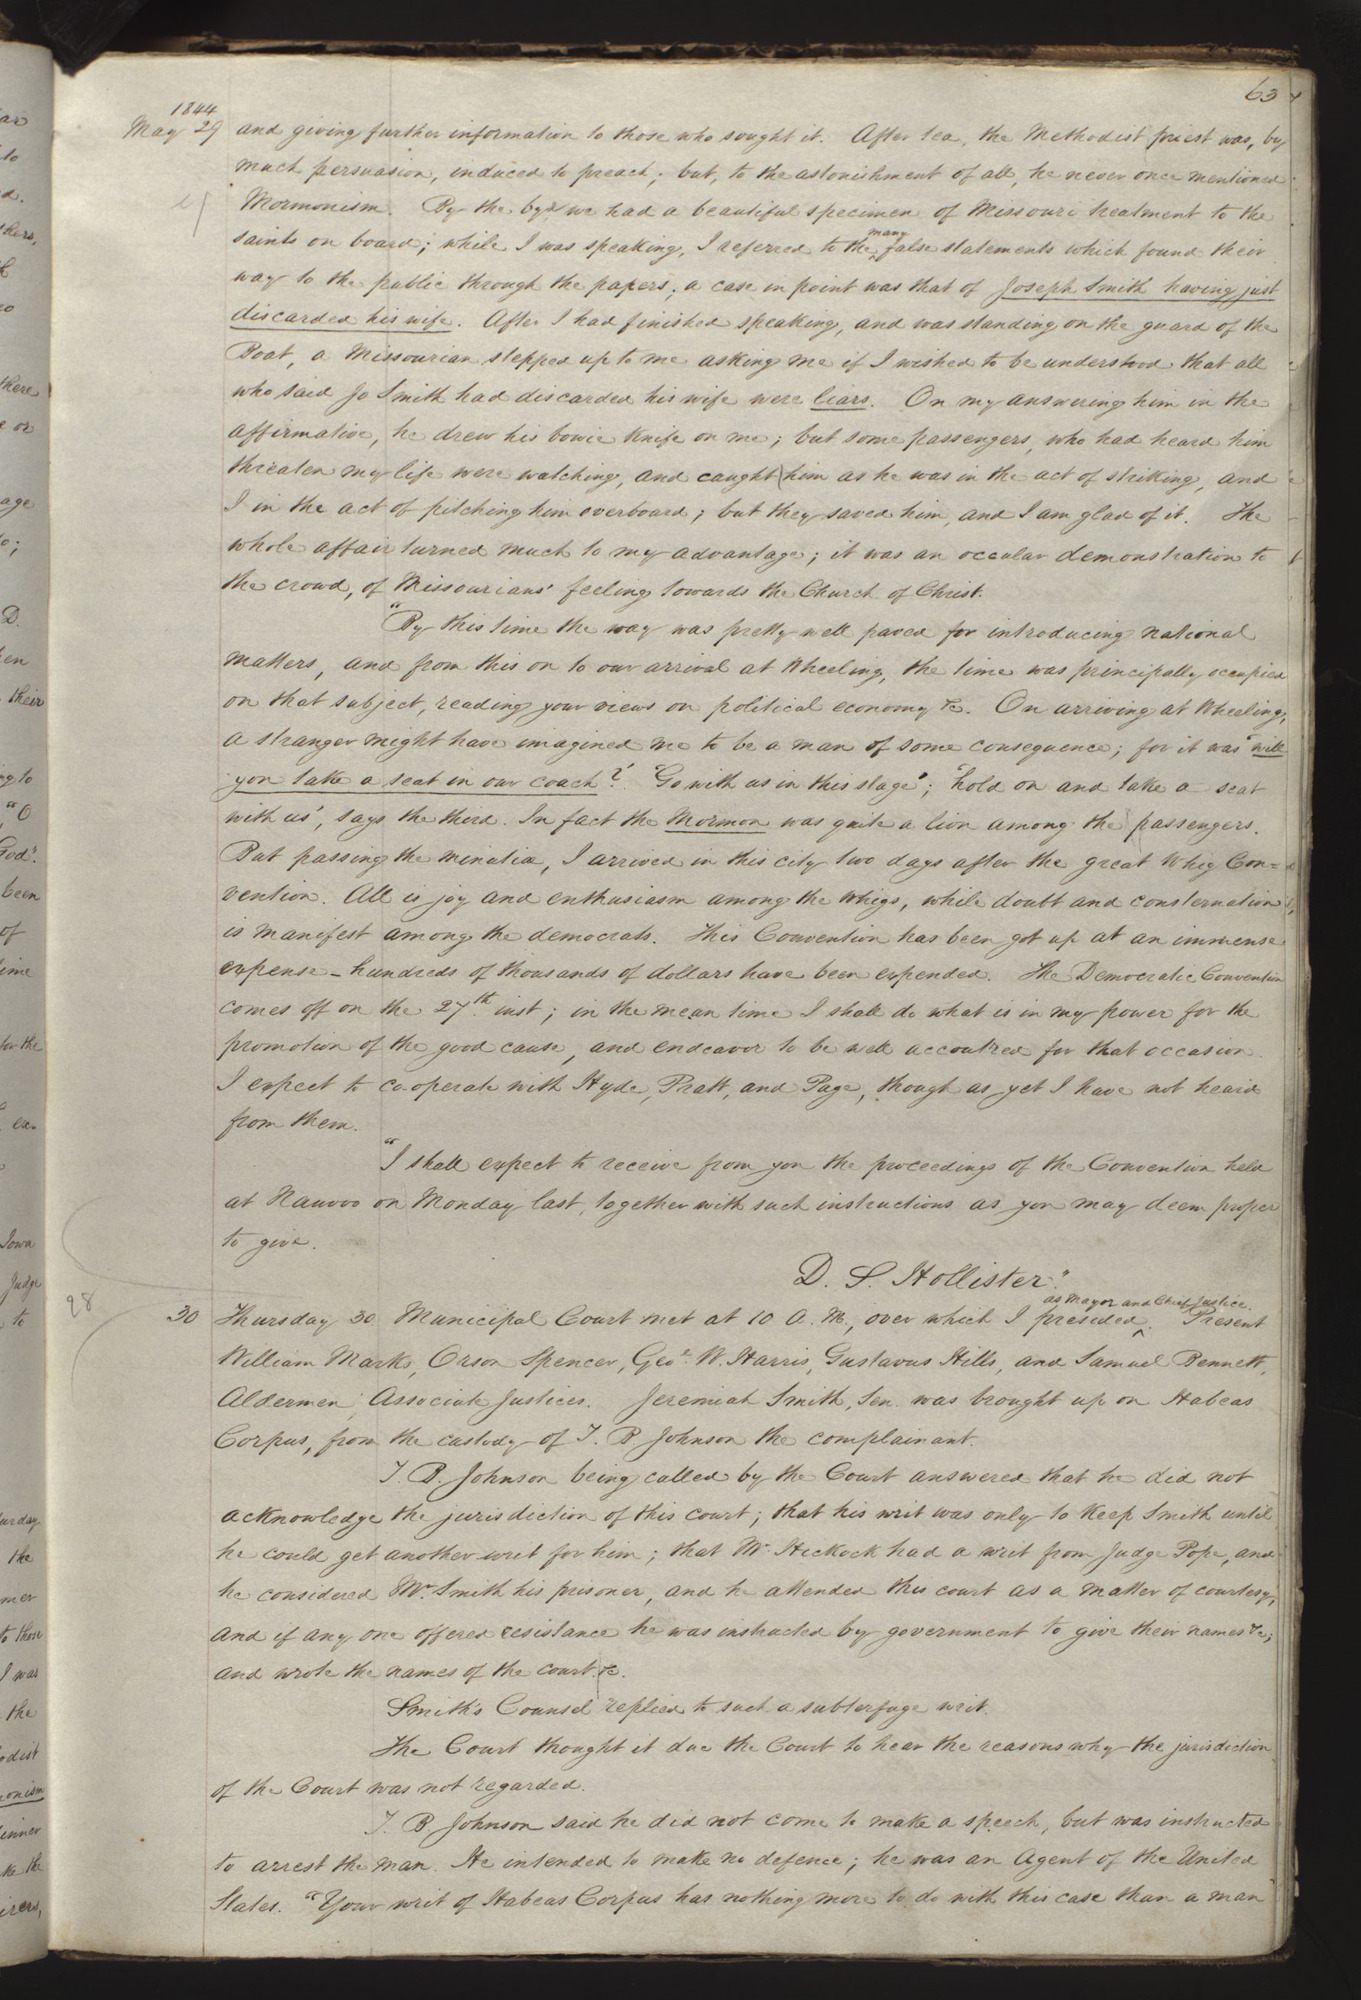 63
1844
May 29 and giving further information to those who sought it. After tea, the Methodist priest was, by
much persuasion, induced to preach; but, to the astonishment of all, he never once mentioned
Mormonism. By the bye we had a beautiful specimen of Missouri treatment to the
saints on board; while I was speaking, I referred to the many false statements which found their
way to the public through the papers; a case in point was that of Joseph Smith having just
discarded his wife. After I had finished speaking, and was standing on the guard of the
Boat, a Missourian stepped up to me asking me if I wished to be understood that all
who said Jo Smith had discarded his wife were liars. On my answering him in the
affirmative, he drew his bowie knife on me; but some passengers, who had heard him
threaten my life were watching, and caught him as he was in the act of striking, and
I in the act of pitching him overboard; but they saved him, and I am glad of it. The
whole affair turned much to my advantage; it was an occular demonstration to
the crowd, of Missourians' feeling towards the Church of Christ.
"By this time the way was pretty well paved for introducing national
matters, and from this on to our arrival at Wheeling, the time was principally occupied
on that subject, reading your views on political economy &c. On arriving at Wheeling,
a stranger might have imagined me to be a man of some consequence; for it was 'will
you take a seat in our coach?' 'Go with us in this stage'; 'hold on and take a seat
with us', says the third. In fact the Mormon was quite a lion among the passengers.
But passing the minatiæ, I arrived in this city two days after the great Whig Con=
vention. All is joy and enthusiasm among the whigs, while doubt and consternation
is manifest among the democrats. This Convention has been got up at an immense
expense – hundreds of thousands of dollars have been expended. The Democratic Convention
comes off on the 27th. inst; in the mean time I shall do what is in my power for the
promotion of the good cause, and endeavor to be well accoutred for that occasion.
I expect to co-operate with Hyde, Pratt, and Page, though as yet I have not heard
from them.
"I shall expect to receive from you the proceedings of the Convention held
at Nauvoo on Monday last, together with such instructions as you may deem proper
to give.
D. S. Hollister."
98
30 Thursday 30 Municipal Court met at 10 A. M., over which I presided as Mayor and Chief Justice. Present
William Marks, Orson Spencer, Geo. W. Harris, Gustavus Hills, and Samuel Bennett,
Aldermen, Associate Justices. Jeremiah Smith, Sen. was brought up on Habeas
Corpus, from the custody of T. B. Johnson the complainant.
T. B. Johnson being called by the Court answered that he did not
acknowledge the jurisdiction of this court; that his writ was only to keep Smith until
he could get another writ for him; that Mr. Hickock had a writ from Judge Pope, and
he considered Mr. Smith his prisoner, and he attended this court as a matter of courtesy,
and if any one offered resistance he was instructed by government to give their names &c;
and wrote the names of the court &c.
Smith's Counsel replied to such a subterfuge writ.
The Court thought it due the Court to hear the reasons why the jurisdiction
of the Court was not regarded.
T. B. Johnson said he did not come to make a speech, but was instructed
to arrest the man. He intended to make no defence; he was an Agent of the United
States. "Your writ of Habeas Corpus has nothing more to do with this case than a man